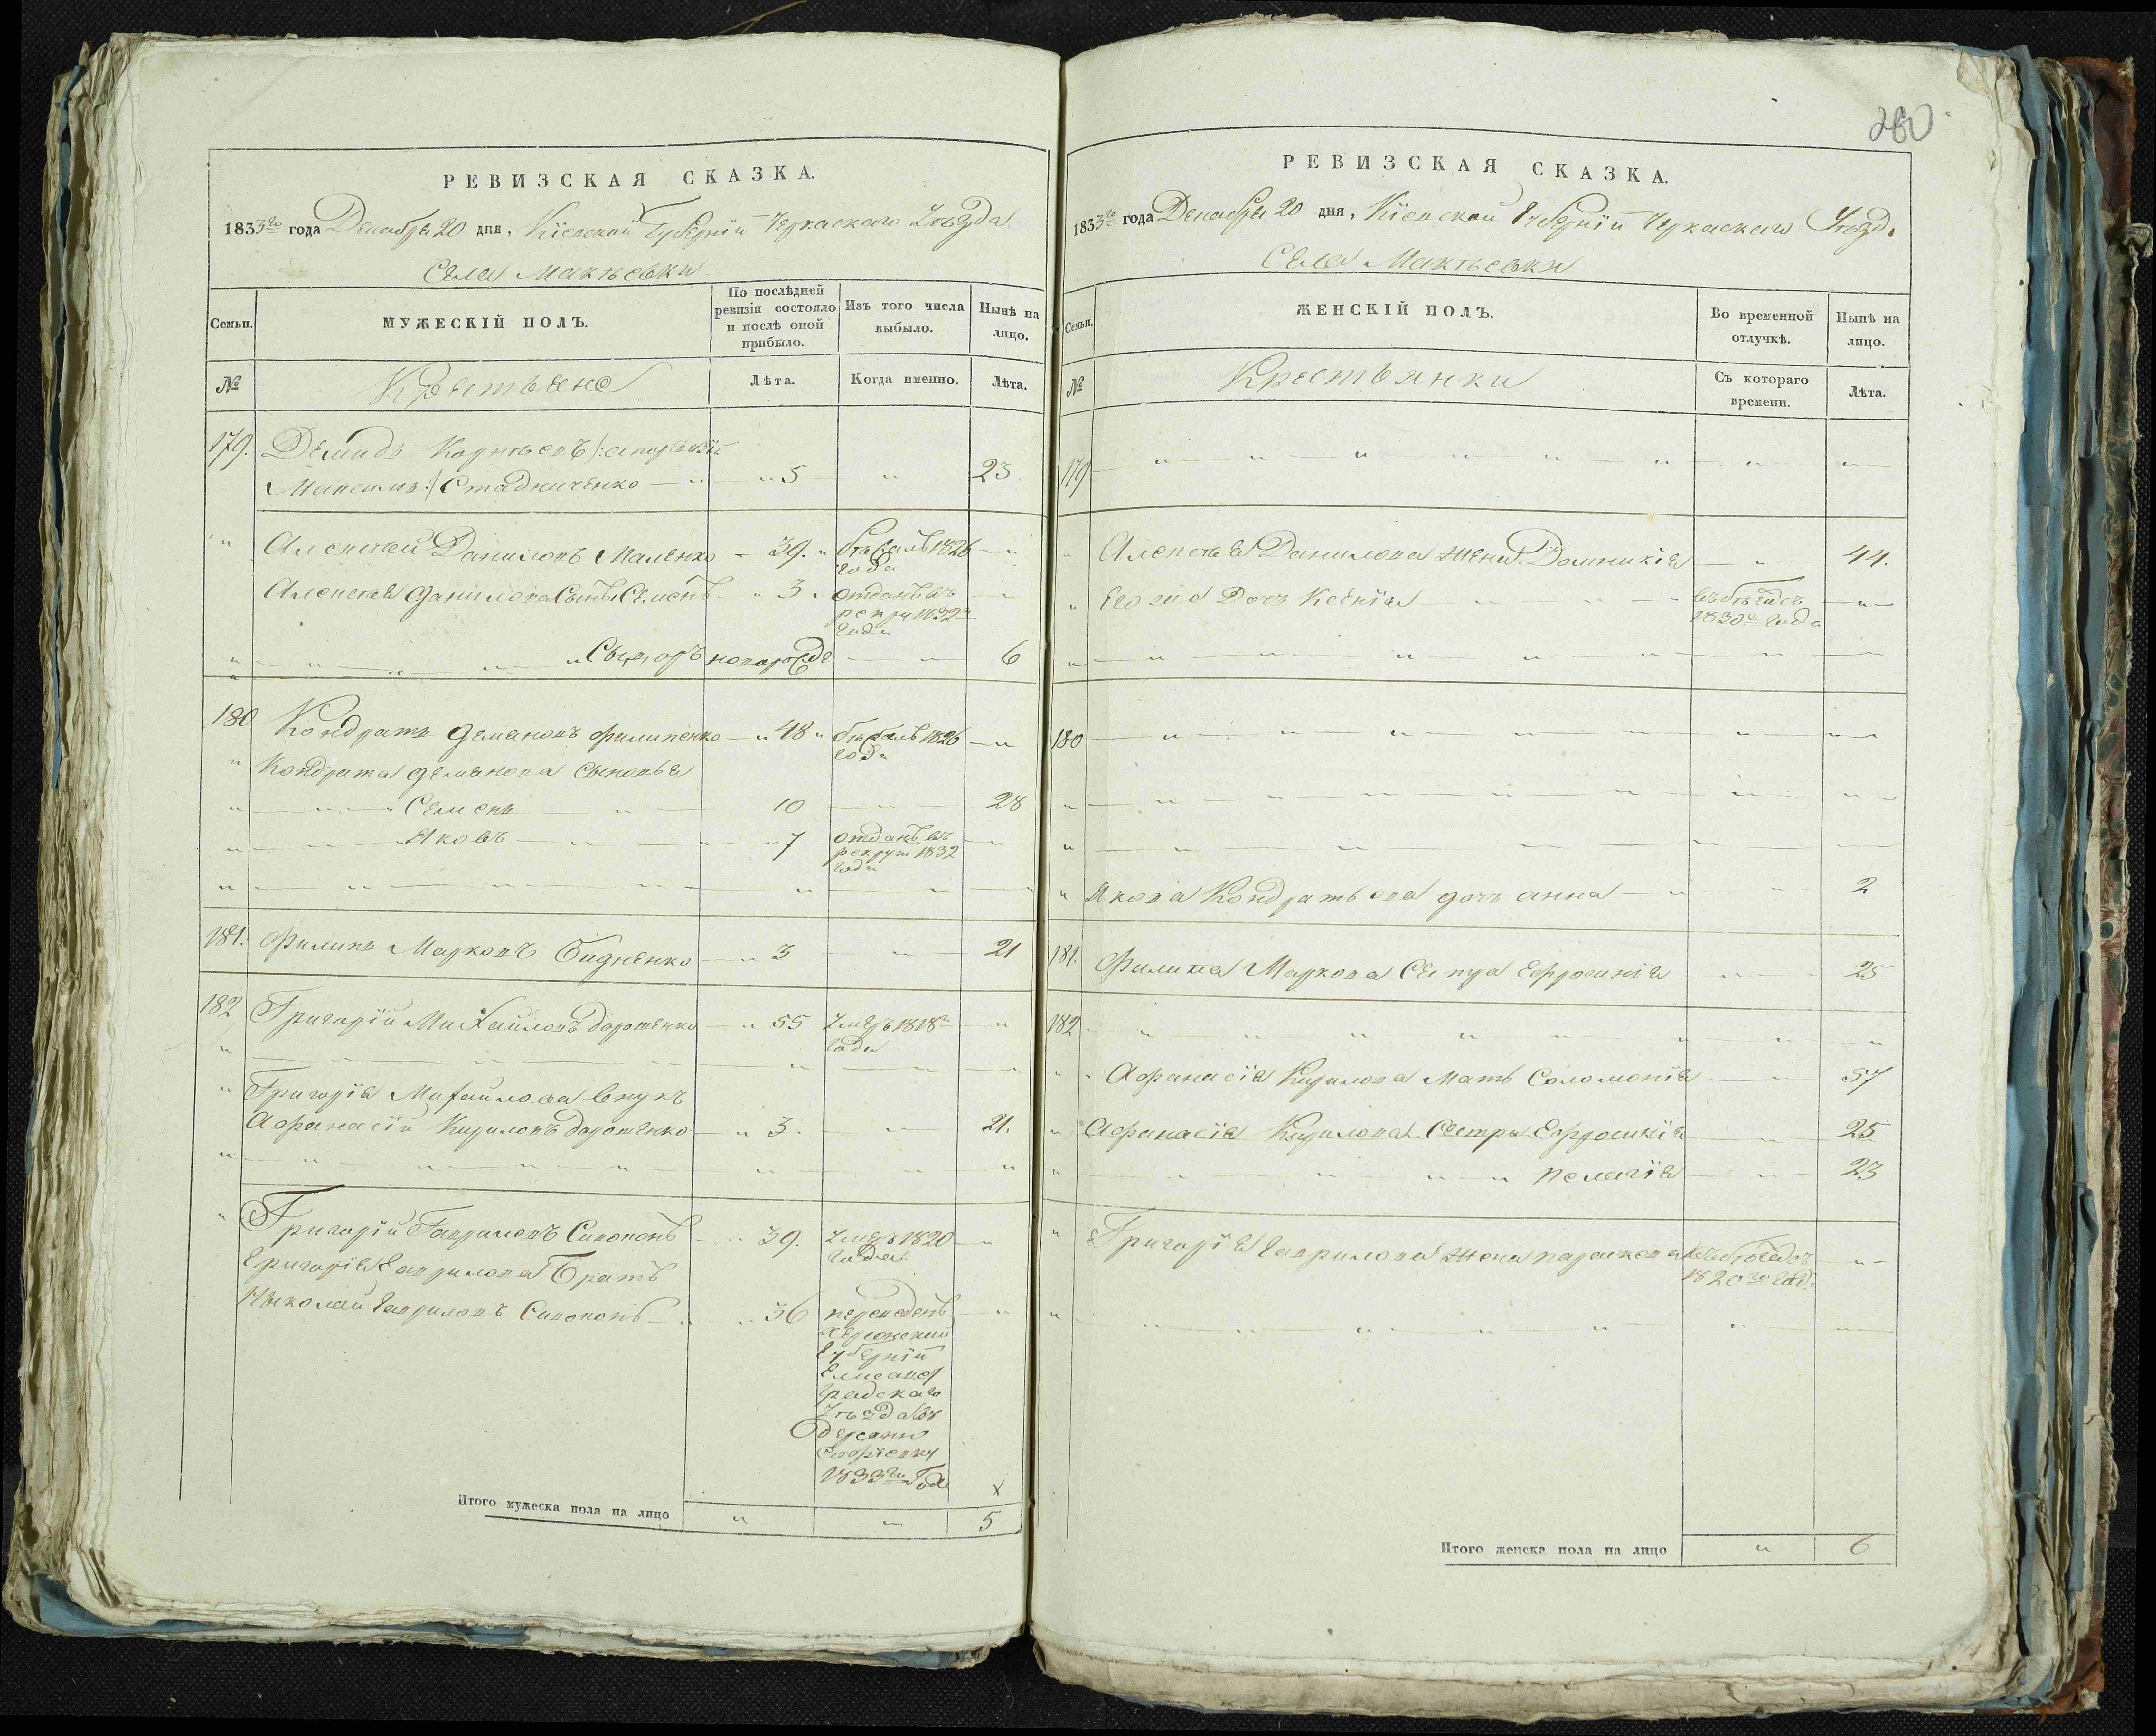 РЕВИЗСКАЯ СКАЗКА.
1833го года Декабря 20 дня, Кіевской Губерніи Черкаскаго Уѣзда
Села Макѣевки
Семьи.
МУЖЕСКІЙ ПОЛЪ.
По послѣдней ревизіи состояло и послѣ оной прибыло.
Изъ того числа выбыло.
Нынѣ на лицо.
№
Крестьяне
Лѣта.
Когда именно.
Лѣта.
179. Демидъ Корнѣевъ
Стадниченко — " " 5 " 23
" Алексѣй Даниловъ Маленко — 39. " бѣжалъ 1826 — "
года
Алексѣя Данилова Сынъ Семенъ " 3 " отданъ въ —
рекру 1832го
года
" — " — " — " Сыдоръ новорожде — " 6
180 Кондратъ Демяновъ Филипенко — " 48 " бѣжалъ 1826 — "
года
" Кондрата Демянова Сыновья
" — " — " Семенъ — " — 10 — " 28
" — " — " Яковъ — " — " 7 отданъ въ — "
рекрут 1832
года
" — " — " — " — " — " — "
181. Филипъ Марковъ Бидненко — " 3 — " — 21
182 Григорій Михайловъ Дорошенко — " 55 умеръ 1818го "
года
" — " — " — " — " — " — "
" Григорія Михайлова Внукъ
Афанасій Кириловъ Дорошенко — " 3. — " — 21.
" — " — " — " — " — " — "
" Григорій Гавриловъ Сивоконь — " 39. умеръ 1820 — "
года.
Григорія Гаврилова Братъ
Николай Гавриловъ Сивоконь — " " 36 переведенъ — "
Херсонской
Губерніи
Елисавет
градскаго
Уѣзда въ
деревню
Софіевку
1833го Года
x
Итого мужеска пола на лицо " — 5
280
РЕВИЗСКАЯ СКАЗКА.
1833го года Декабря 20 дня, Кіевской Губерніи Черкаскаго Уѣзд.
Села Макѣевки
Семьи.
ЖЕНСКІЙ ПОЛЪ.
Во временной отлучкѣ.
Нынѣ на лицо.
№
Крестьянки
Съ котораго времени.
Лѣта.
179 — " — " — " — " — " — " — "
" Алексѣя Данилова жена Домникія — " 44.
" Его же Дочь Ксенія — " — " въ бѣгахъ — " —
1830го года
" — " — " — " — " — " — " —
180 — " — " — " — " — " — " —
" — " — " — " — " — " — " —
" — " — " — " — " — " — " —
" Якова Кондратьева дочь Анна — " " 2
181. Филипа Маркова Сестра Ефросинія — " — 25
182 — " — " — " — " — " — "
" " Афанасія Кирилова Мать Соломонія — " — 57
" Афанасія Кирилова Сестры Ефросинія — " — 25
" — " — " — " Пелагія — " — 23
" Григорія Гаврилова жена Параскева въ бѣгахъ — " —
1820го Года
" — " — " — " — " — " — " —
Итого женска пола на лицо " 6